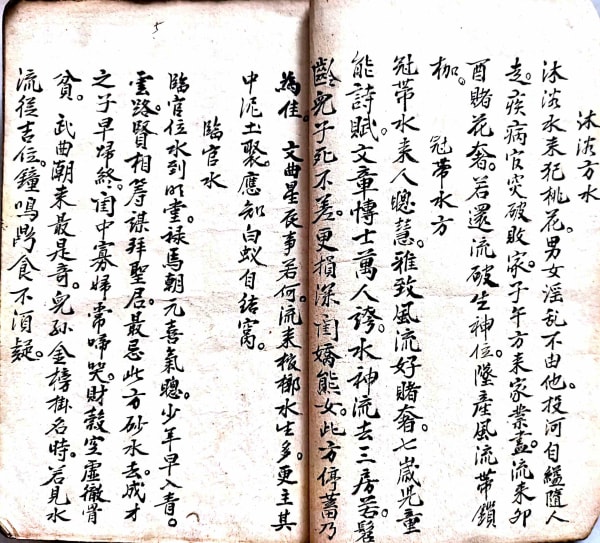 沐浴方水
沐浴水来犯桃花。男女淫乱不由他。投河自縊隨人
走。疾病官災破敗家。子午方来家業盡。流来卯
酉賭花奢。若還流破生神位。墜產風流帶鎖
枷。
冠帶水方
冠帶水来人聰慧。雅致風流好賭奢。七歲児童
能詩賦。文章博士萬人誇。水神流去三房苦。髫
齡兒子死不差。更損深閨嬌態女。此方停蓄乃
為佳。
文曲星辰事若何。流来棺槨水生多。更主其
中泥土聚。應知白蚁自結窩。
臨官水
臨官位水到明堂。禄馬朝元喜氣聰。少年早入青
雲路。賢相籌謀拜聖君。最忌此方砂水去。成才
之子早歸終。閨中寡婦常啼哭。財穀空虛徹骨
貧。武曲朝来最是奇。兒孫金榜掛名時。若見水
流從吉位。鐘鳴鼎食不須疑。
5